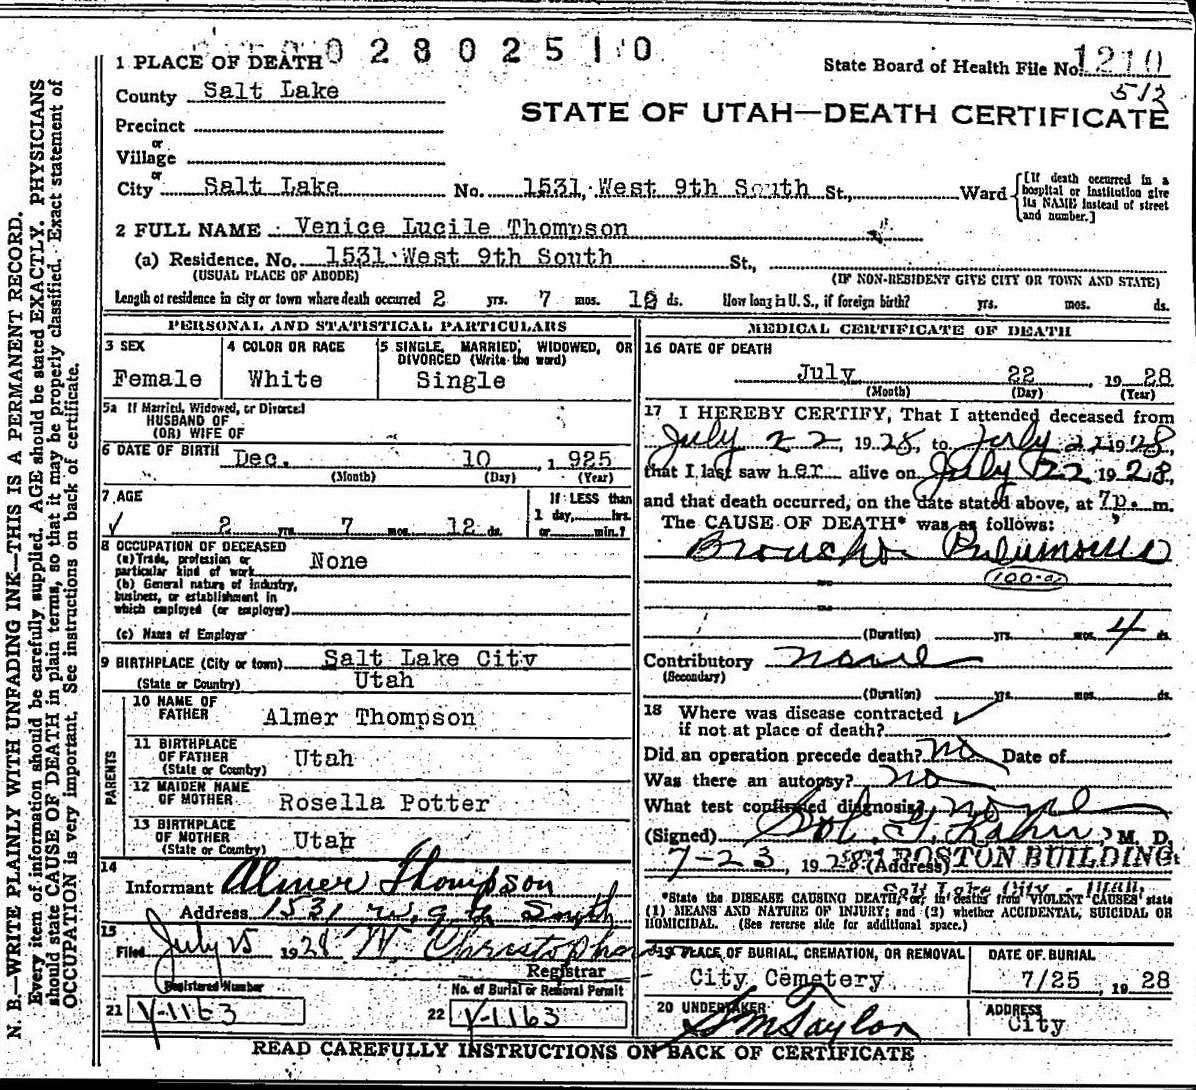 0 0 2 8 0 2 5 1 0
1 PLACE OF DEATH
State Board of Health File No. 1210
512
County Salt Lake
STATE OF UTAH—DEATH CERTIFICATE
Precinct
or
Village
or
City Salt Lake No. 1531 West 9th South St., Ward
[If death occurred in a hospital or institution give its NAME instead of street and number.]
2 FULL NAME Venice Lucile Thompson
(a) Residence. No. 1531 West 9th South St.,
(USUAL PLACE OF ABODE) (IF NON-RESIDENT GIVE CITY OR TOWN AND STATE)
Length of residence in city or town where death occurred 2 yrs. 7 mos. 12 ds. How long in U. S., if foreign birth? yrs. mos. ds.
PERSONAL AND STATISTICAL PARTICULARS
3 SEX
Female
4 COLOR OR RACE
White
5 SINGLE, MARRIED, WIDOWED, OR
DIVORCED (Write the word)
Single
5a If Married, Widowed, or Divorced
HUSBAND OF
(OR) WIFE OF
6 DATE OF BIRTH Dec. 10 , 1925
(Month) (Day) (Year)
7 AGE
2 yrs. 7 mos. 12 ds.
If LESS than
1 day, hrs.
or min.?
8 OCCUPATION OF DECEASED
(a) Trade, profession or
particular kind of work None
(b) General nature of industry,
business, or establishment in
which employed (or employer)
(c) Name of Employer
9 BIRTHPLACE (City or town) Salt Lake City
(State or Country) Utah
PARENTS
10 NAME OF
FATHER Almer Thompson
11 BIRTHPLACE
OF FATHER Utah
(State or Country)
12 MAIDEN NAME
OF MOTHER Rosella Potter
13 BIRTHPLACE
OF MOTHER Utah
(State or Country)
14
Informant Almer Thompson
Address 1531 W. 9th South
15
Filed July 25 1928 W Christopherson
Registrar
Registered Number
21 V-1163
No. of Burial or Removal Permit
22 V-1163
MEDICAL CERTIFICATE OF DEATH
16 DATE OF DEATH
July 22 , 19 28
(Month) (Day) (Year)
17 I HEREBY CERTIFY, That I attended deceased from
July 22, 1928, to July 22 1928,
that I last saw her alive on July 22 1928,
and that death occurred, on the date stated above, at 7p. m.
The CAUSE OF DEATH* was as follows:
Broncho Pneumonia
100-a
(Duration) yrs. mos. 4 ds.
Contributory none
(Secondary)
(Duration) yrs. mos. ds.
18 Where was disease contracted
if not at place of death?
Did an operation precede death? no Date of
Was there an autopsy? no
What test confirmed diagnosis? none
(Signed) Sol. G. Kahn, M. D.
7-23, 1928 (Address) BOSTON BUILDING
Salt Lake City - Utah.
*State the DISEASE CAUSING DEATH, or, in deaths from VIOLENT CAUSES state
(1) MEANS AND NATURE OF INJURY; and (2) whether ACCIDENTAL, SUICIDAL OR
HOMICIDAL. (See reverse side for additional space.)
19 PLACE OF BURIAL, CREMATION, OR REMOVAL
City Cemetery
DATE OF BURIAL
7/25 , 19 28
20 UNDERTAKER
S M Taylor
ADDRESS
City
READ CAREFULLY INSTRUCTIONS ON BACK OF CERTIFICATE
N. B.—WRITE PLAINLY WITH UNFADING INK—THIS IS A PERMANENT RECORD.
Every item of information should be carefully supplied. AGE should be stated EXACTLY. PHYSICIANS
should state CAUSE OF DEATH in plain terms, so that it may be properly classified. Exact statement of
OCCUPATION is very important. See instructions on back of certificate.